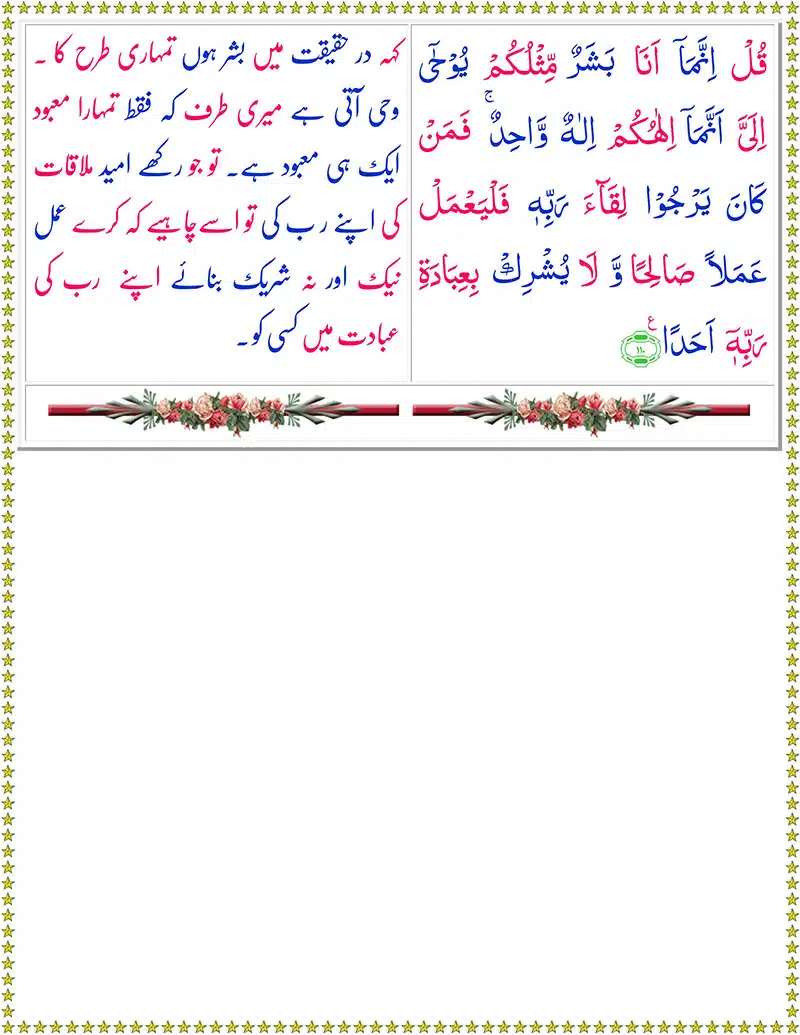 قُلْ اِنَّمَاۤ اَنَا بَشَرٌ مِّثْلُكُمْ يُوْحٰۤى
اِلَىَّ اَنَّمَاۤ اِلٰهُكُمْ اِلٰهٌ وَّاحِدٌ ۚ فَمَنْ
كَانَ يَرْجُوْا لِقَآءَ رَبِّهٖ فَلْيَعْمَلْ
عَمَلاً صَالِحًا وَّ لَا يُشْرِكْ بِعِبَادَةِ
رَبِّهٖۤ اَحَدًا ۧ ۱۱۰
کہہ در حقیقت میں بشر ہوں تمہاری طرح کا ۔
وحی آتی ہے میری طرف کہ فقط تمہارا معبود
ایک ہی معبود ہے۔ تو جو رکھے امید ملاقات
کی اپنے رب کی تو اسے چاہیے کہ کرے عمل
نیک اور نہ شریک بنائے اپنے رب کی
عبادت میں کسی کو۔